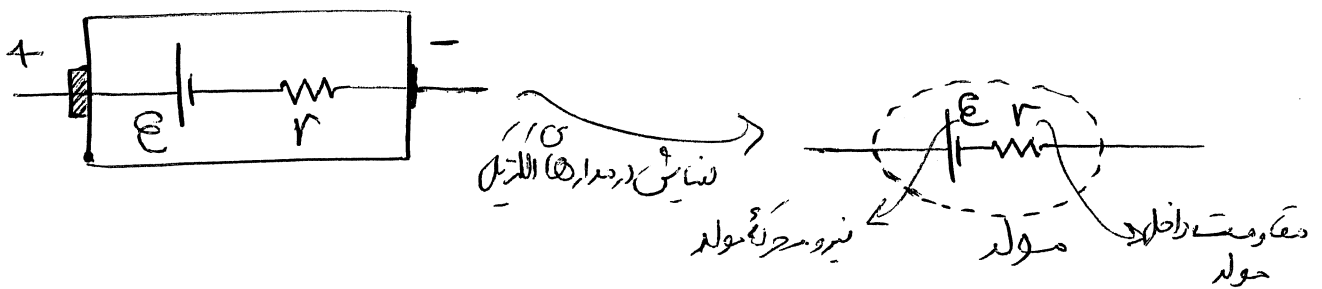 + -
ε r
نمایش در مدارهای الکتریکی
ε r
نیرو محرکهٔ مولد
مولد
مقاومت داخلی
مولد